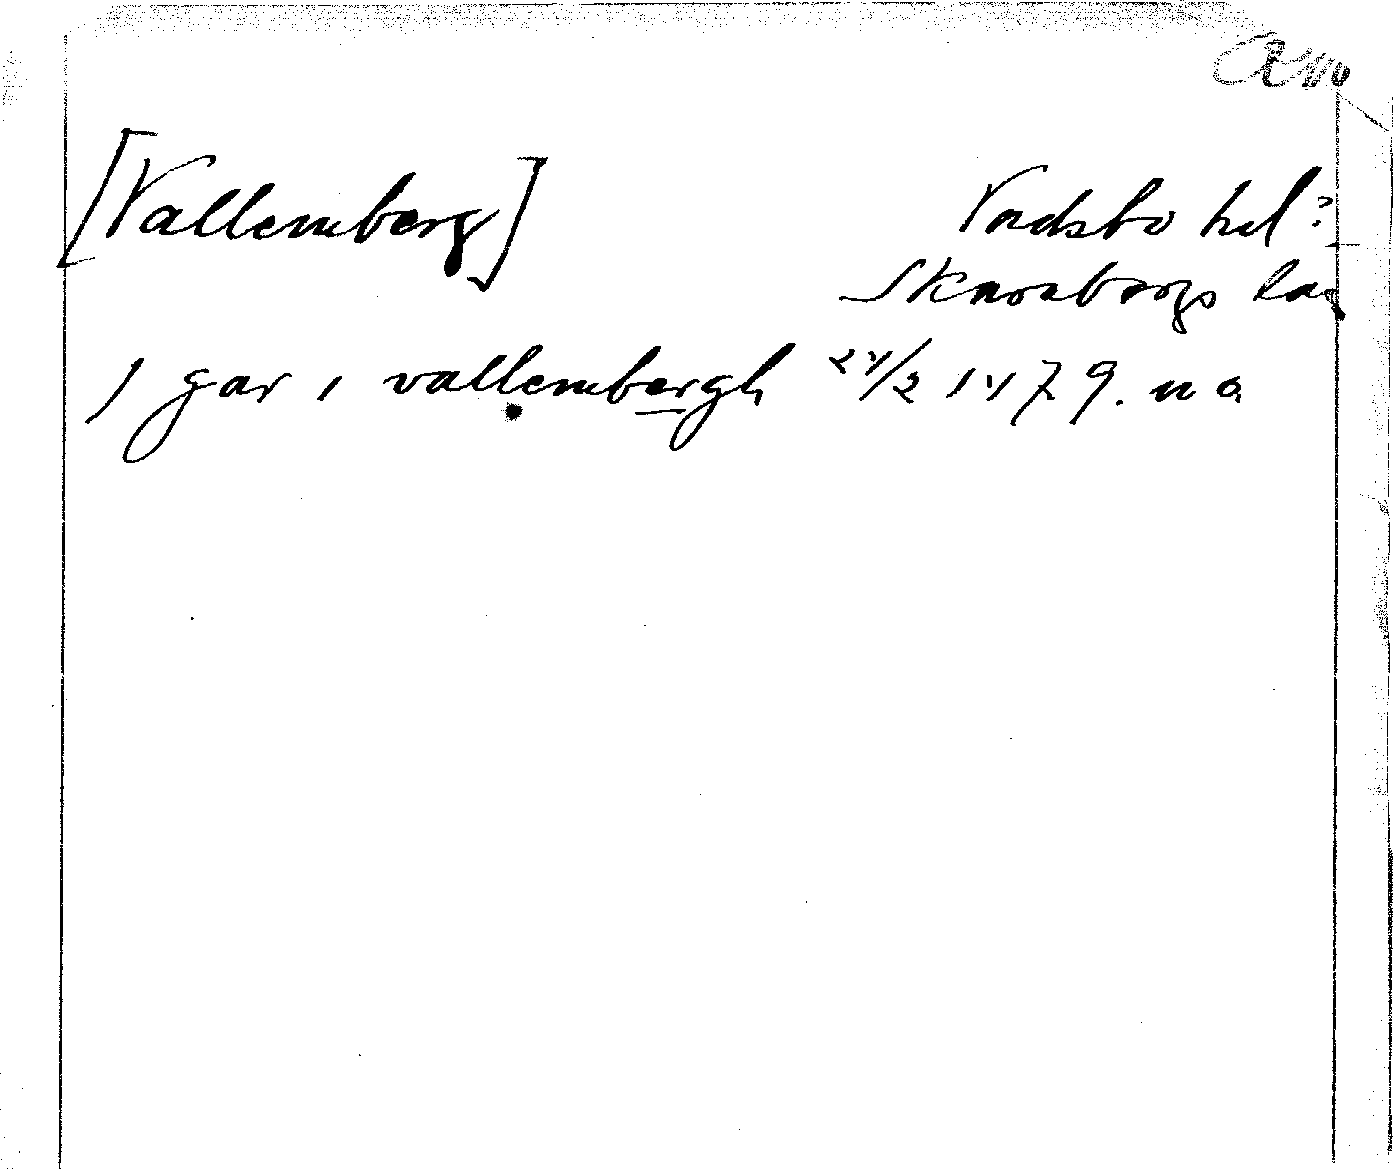 [Vallemberg]
Vadsbo hd?
Skaraborgs län
1 gar i vallembergh 24/2 1479. n a